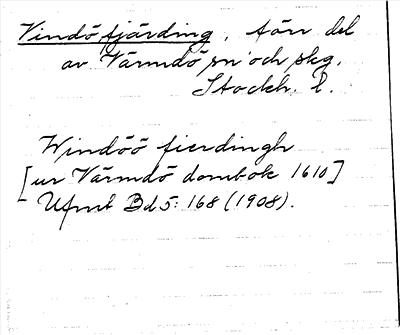 Vindö fjärding, förr del
av Värmdö sn och skg.
Stockh. l.
Windöö fierdingh
[ur Värmdö dombok 1610]
Ufmt Bd 5: 168 (1908).